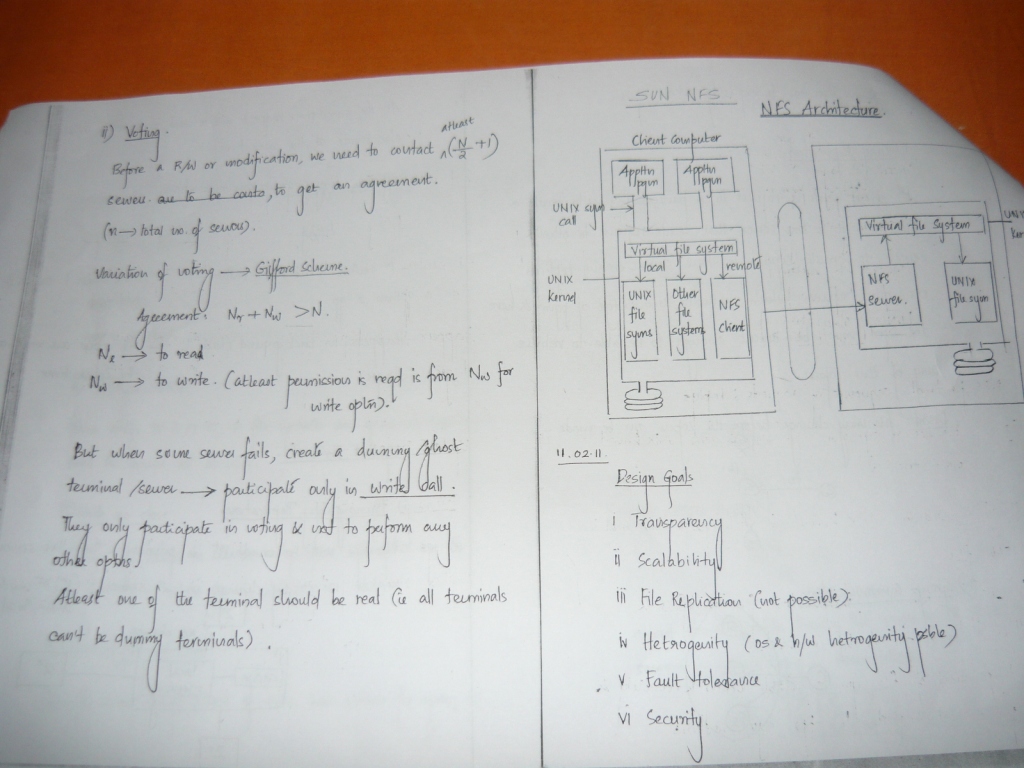 ii) Voting.
Before a R/w or modification, we need to contact ^ atleast (N/2 +1)
sewer are to be conta, to get an agreement.
(n → total no. of sewers).
Variation of voting → Gifford scheme.
Agreement: Nr + Nw > N.
Nr → to read.
Nw → to write. (atleast permission is reqd is from Nw for
write optn).
But when some sewer fails, create a dummy / ghost
terminal / sewer → participate only in write call.
They only participate in voting & not to perform any
other optns.
Atleast one of the terminal should be real (ie all terminals
can't be dummy terminals).
SUN NFS
NFS Architecture.
Client Computer
Appltn pgm
Appltn pgm
UNIX sysm call
Virtual file system
local
remote
UNIX kernel
UNIX file sysms
Other file systems
NFS client
Virtual file system
UNIX
NFS sewer.
UNIX file sysm
11.02.11.
Design Goals
i Transparency
ii Scalability
iii File Replication (not possible).
iv Hetrogenity (OS & h/w hetrogenity psble)
v Fault tolerance
vi Security.